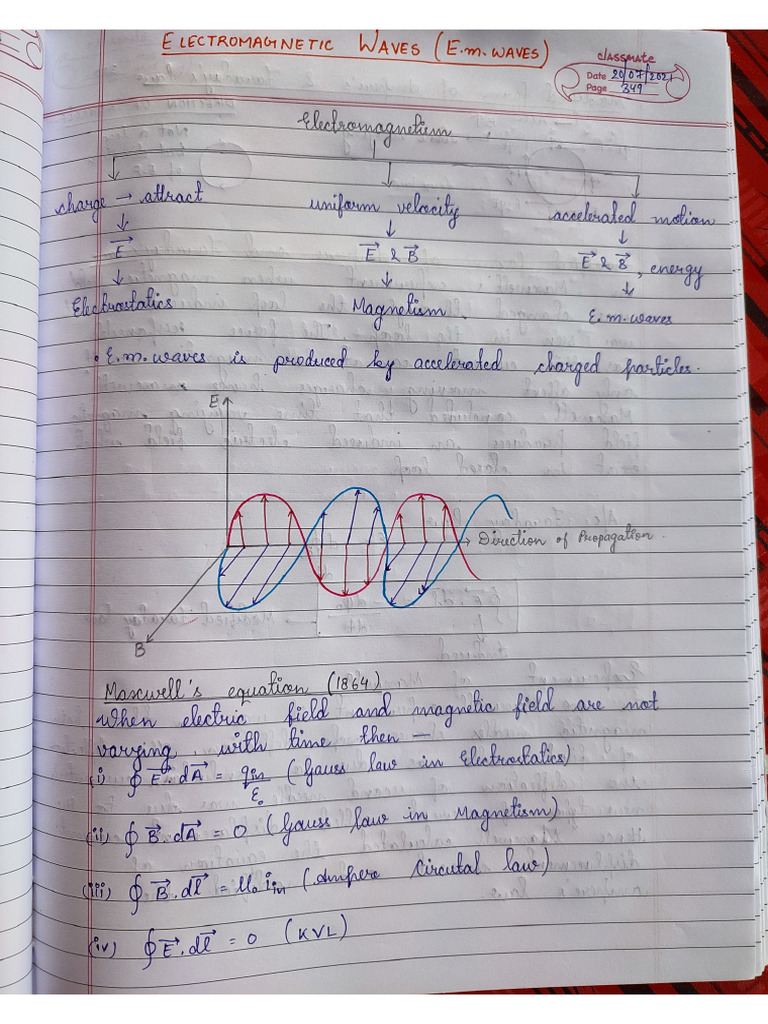 ELECTROMAGNETIC WAVES (E.m. WAVES)
classmate
Date 20/07/2021
Page 349
Electromagnetism
charge → attract uniform velocity accelerated motion
↓ ↓ ↓
E⃗ E⃗ & B⃗ E⃗ & B⃗, energy
↓ ↓ ↓
Electrostatics Magnetism. E.m. waves
• E.m. waves is produced by accelerated charged particles.
E
→ Direction of Propagation.
B
Maxwell's equation (1864)
When electric field and magnetic field are not
varying, with time then —
(i) ∮ E⃗. dA⃗ = qin/ε₀ (Gauss law in Electrostatics)
(ii) ∮ B⃗. dA⃗ = 0 (Gauss law in Magnetism)
(iii) ∮ B⃗. dl⃗ = μ₀ iin (Ampere Circutal law)
(iv) ∮ E⃗. dl⃗ = 0 (KVL)